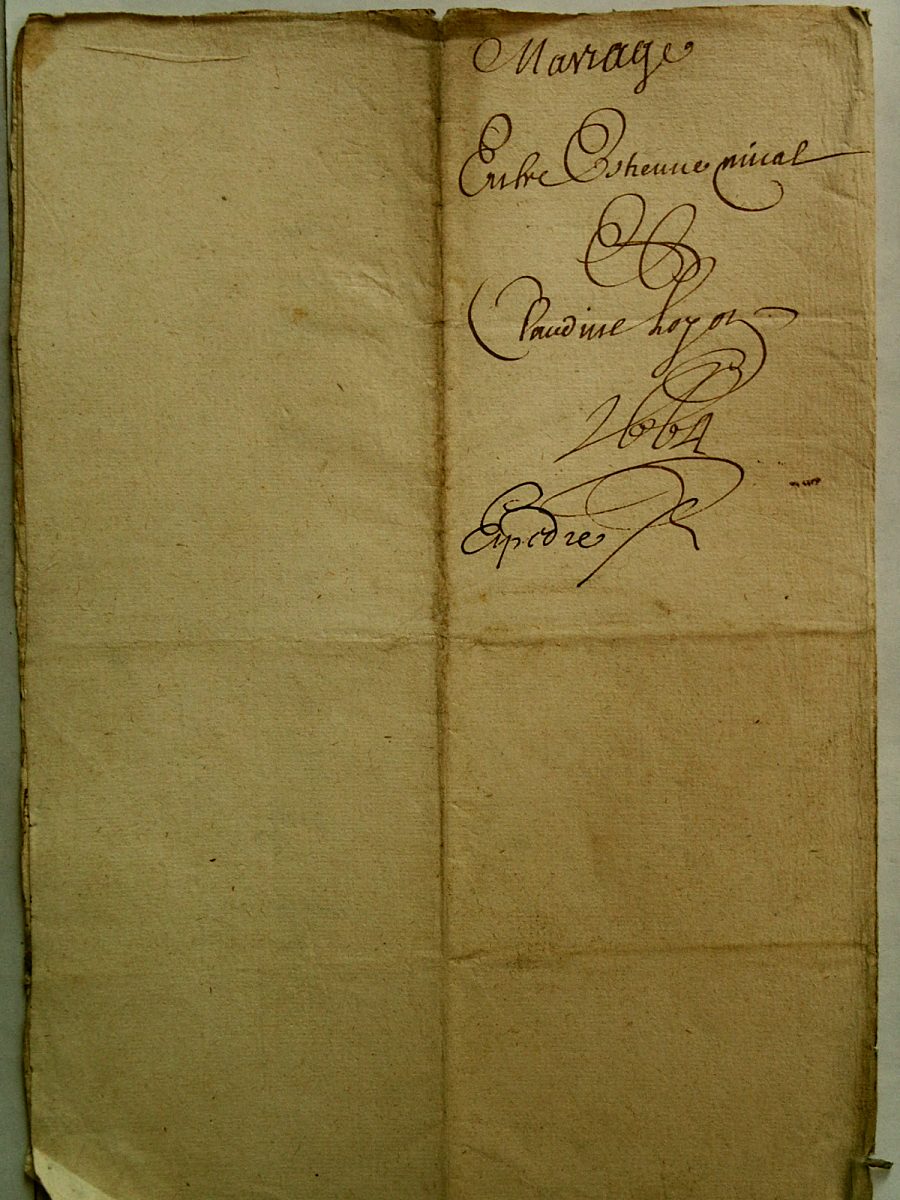 Mariage
Entre Estienne minal
Et
Claudine hoyon
1664
Expedre